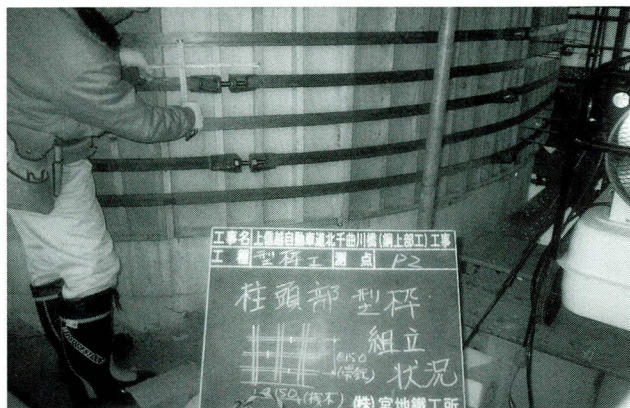 工事名 上信越自動車道北千曲川橋(鋼上部工)工事
工種 型枠工 測点 P2
柱頭部 型枠
組立
状況
@150
(帯鉄)
@150 (桟木)
(株)宮地鐵工所